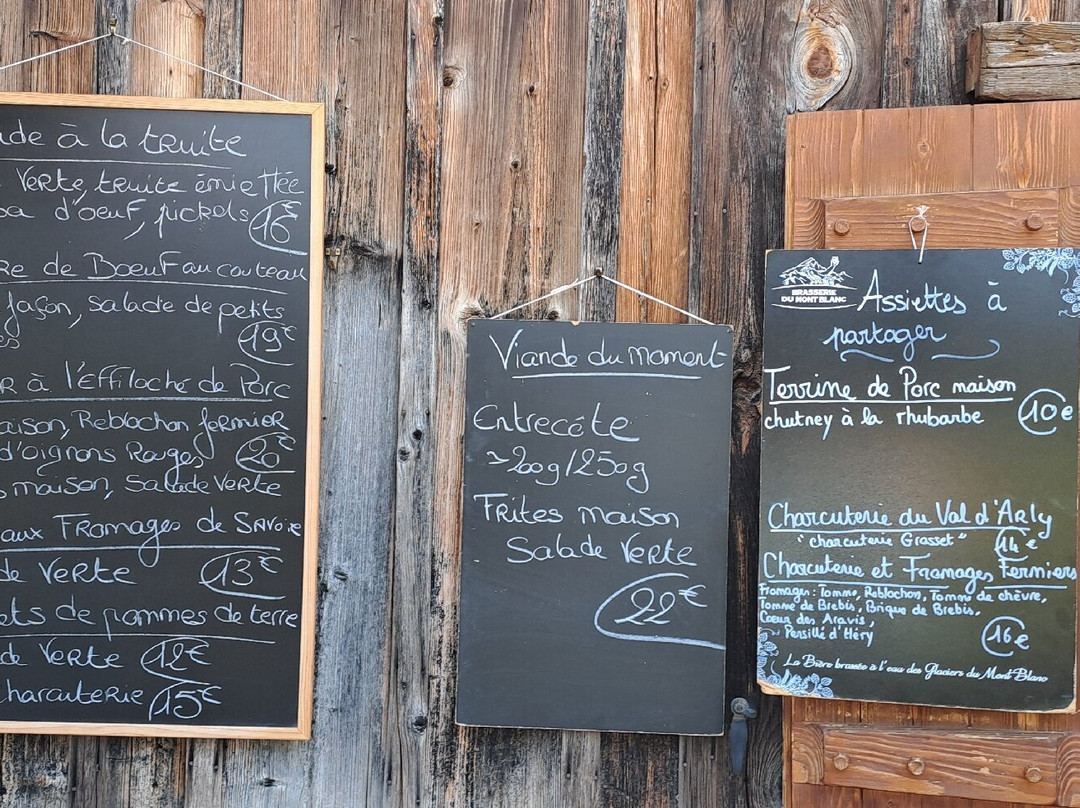 à la truite
Verte, truite émiettée
d'oeuf, pickels 16€
de Boeuf au couteau
façon, salade de petits
19€
à l'Effiloché de Porc
Reblochon fermier
d'oignons Rouges 20€
maison, Salade Verte
aux Fromages de Savoie
Verte 13€
de pommes de terre
Verte 12€
charcuterie 15€
Viande du moment
Entrecôte
~200g/250g
Frites maison
Salade Verte
22€
BRASSERIE
DU MONT BLANC
Assiettes à
partager
Terrine de Porc maison
chutney à la rhubarbe 10€
Charcuterie du Val d'Arly
"charcuterie Grosset" 14€
Charcuterie et Fromages Fermiers
Fromages: Tomme, Reblochon, Tomme de chèvre,
Tomme de Brebis, Brique de Brebis,
Coeur des Aravis,
Persillé d'Héry
16€
La Bière brassée à l'eau des Glaciers du Mont Blanc